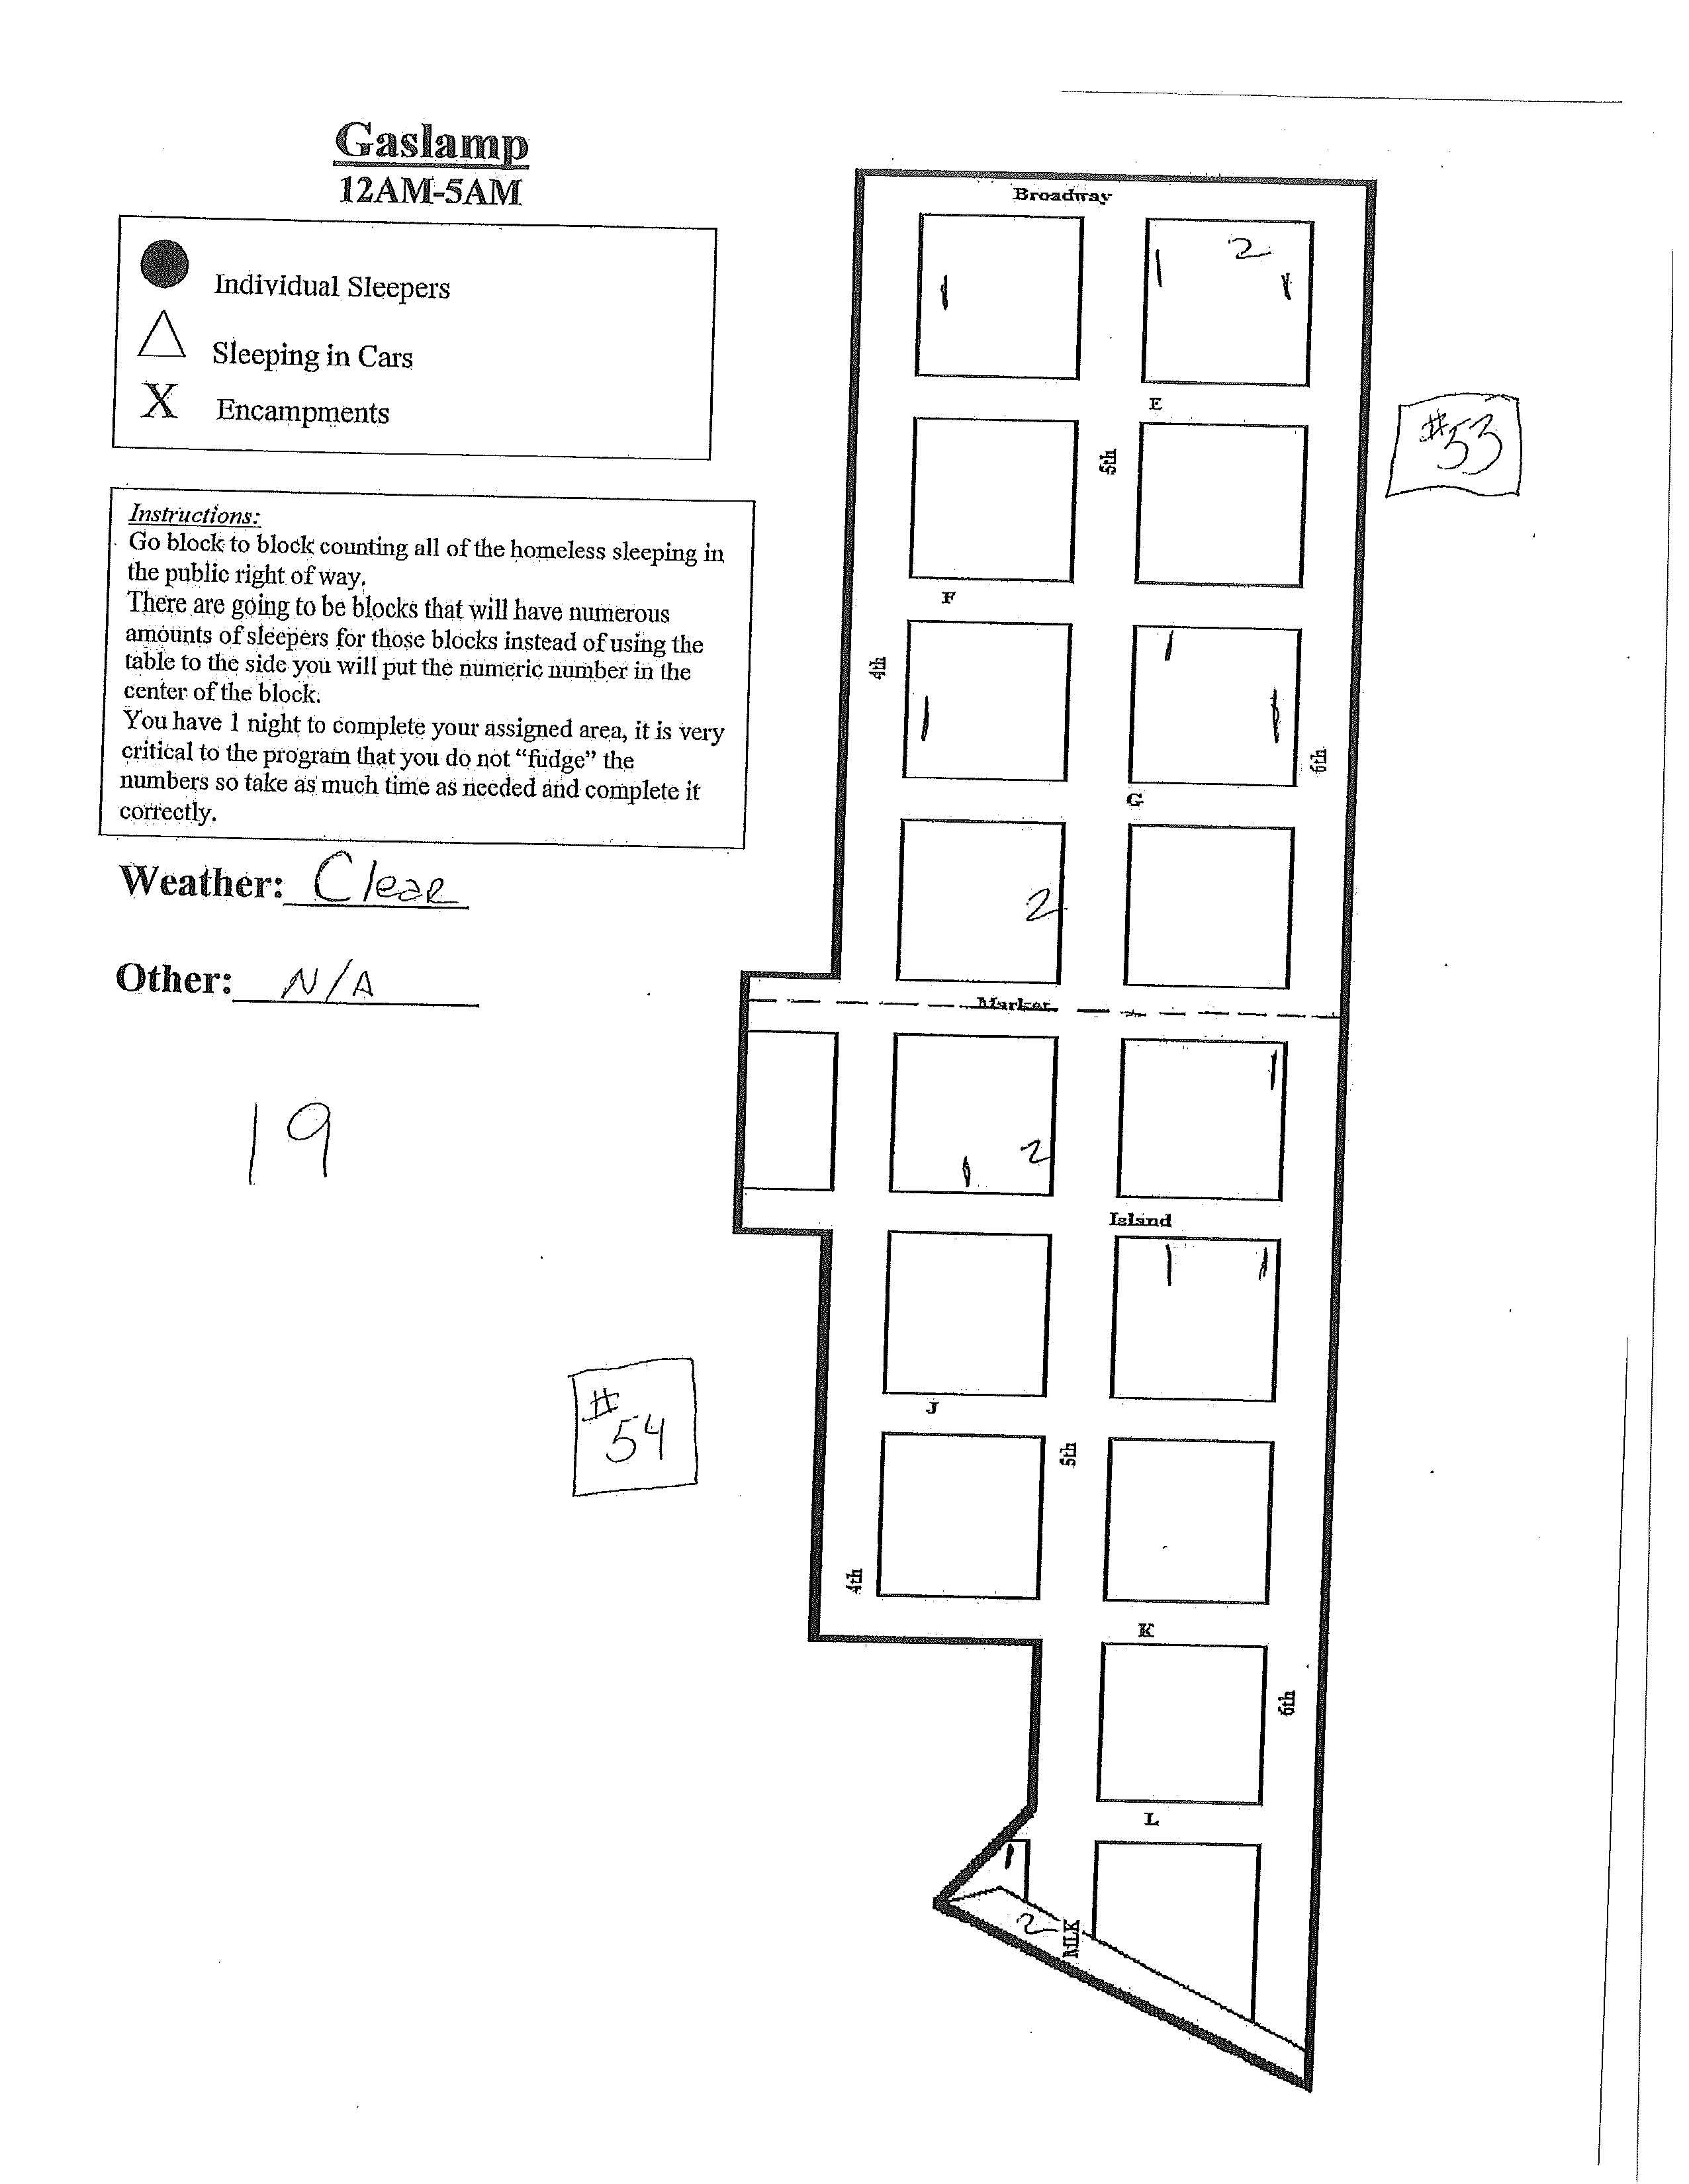 Gaslamp
12AM-5AM
Individual Sleepers
Sleeping in Cars
X Encampments
Instructions:
Go block to block counting all of the homeless sleeping in
the public right of way.
There are going to be blocks that will have numerous
amounts of sleepers for those blocks instead of using the
table to the side you will put the numeric number in the
center of the block.
You have 1 night to complete your assigned area, it is very
critical to the program that you do not “fudge” the
numbers so take as much time as needed and complete it
correctly.
Weather: Clear
Other: N/A
19
#
54
Broadway
1
1
2
1
E
5th
#53
F
4th
1
1
1
6th
G
2
Market
1
2
1
Island
1
1
J
5th
4th
K
6th
L
1
2
MLK